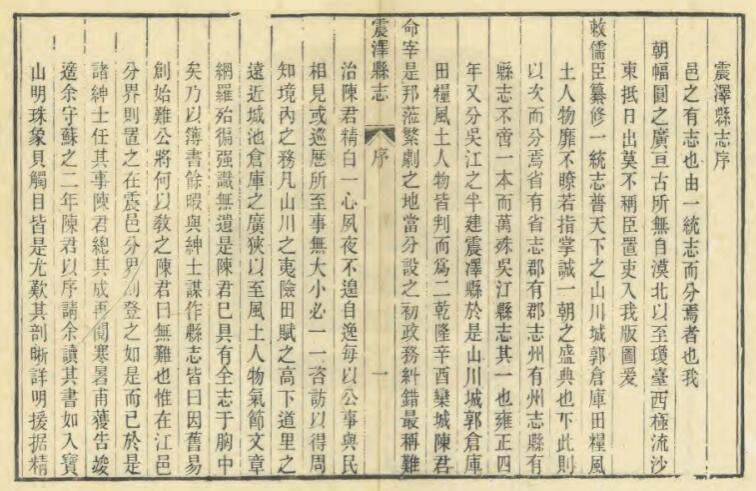 震澤縣志序
邑之有志也由一統志而分焉者也我
朝幅圓之廣亘古所無自漠北以至瓊臺西極流沙
東抵日出莫不稱臣置吏入我版圖爰
敕儒臣纂修一統志普天下之山川城郭倉庫田糧風
土人物靡不瞭若指掌誠一朝之盛典也下此則
以次而分焉省有省志郡有郡志州有州志縣有
縣志不啻一本而萬殊吳江縣志其一也雍正四
年又分吳江之半建震澤縣於是山川城郭倉庫
田糧風土人物皆判而爲二乾隆辛酉欒城陳君
命宰是邦蒞繁劇之地當分設之初政務糾錯最稱難
震澤縣志
序
一
治陳君精白一心夙夜不遑自逸每以公事與民
相見或巡歷所至事無大小必一一咨訪以得周
知境內之務凡山川之夷險田賦之高下道里之
遠近城池倉庫之廣狹以至風土人物氣節文章
網羅殆徧强識無遺是陳君已具有全志于胸中
矣乃以簿書餘暇與紳士謀作縣志皆曰因舊易
創始難公將何以敎之陳君曰無難也惟在江邑
分界則置之在震邑分界則登之如是而已於是
諸紳士任其事陳君總其成再閱寒暑甫獲告竣
適余守蘇之二年陳君以序請余讀其書如入寶
山明珠象貝觸目皆是尤歎其剖晰詳明援据精